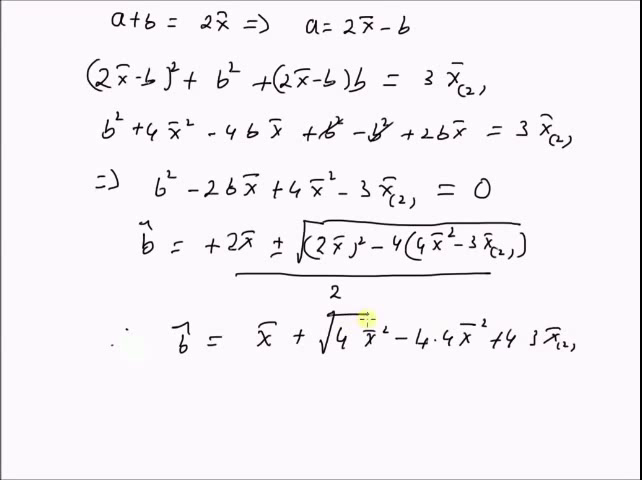 a+b = 2x̄ => a = 2x̄ - b
(2x̄-b)² + b² + (2x̄-b)b = 3 x̄₍₂,
b² + 4x̄² - 4bx̄ + b² - b² + 2bx̄ = 3 x̄₍₂,
=> b² - 2bx̄ + 4x̄² - 3x̄₍₂, = 0
b̂ = +2x̄ ± √((2x̄)² - 4(4x̄² - 3x̄₍₂,)) / 2
∴ b̂ = x̄ + √4 x̄² - 4.4x̄² + 4 3 x̄₍₂,